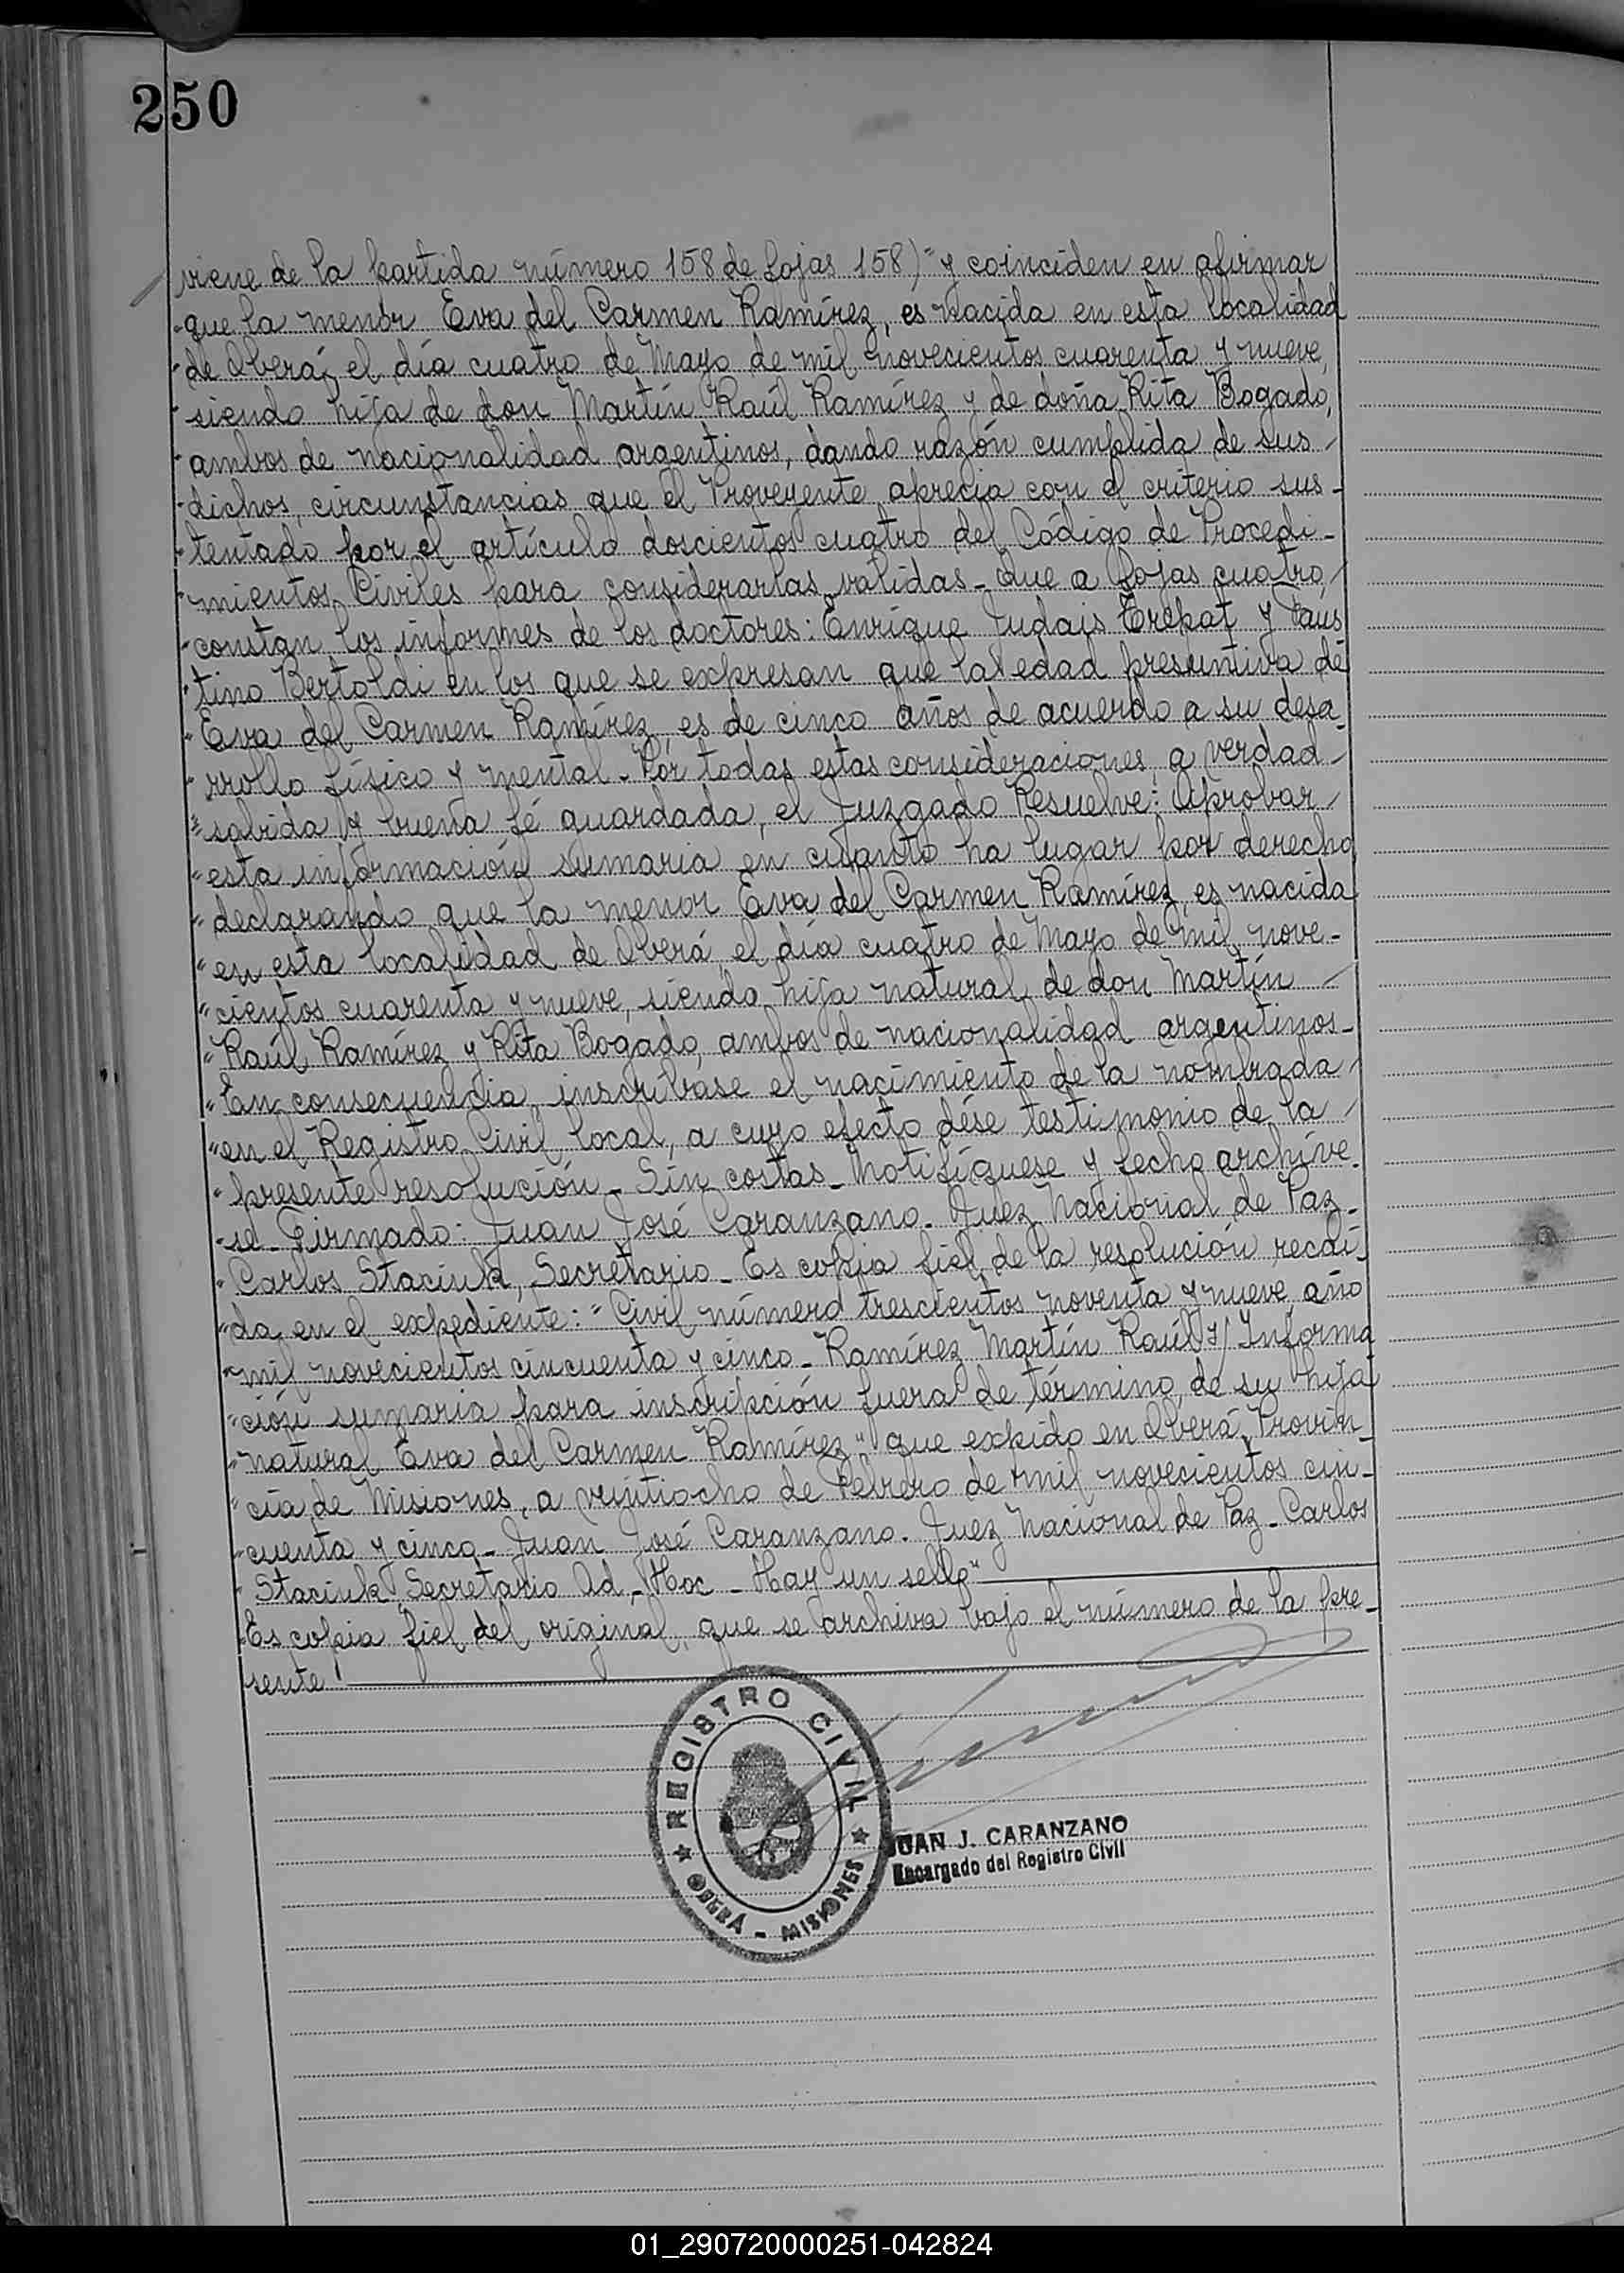 250
viene de la partida número 158 de fojas 158)" y coinciden en afirmar
"que la menor Eva del Carmen Ramírez, es nacida en esta localidad
"de Oberá, el día cuatro de Mayo de mil novecientos cuarenta y nueve,
"siendo hija de don Martín Raúl Ramírez y de doña Rita Bogado,
"ambos de nacionalidad argentinos, dando razón cumplida de sus
"dichos, circunstancias que el Proveyente aprecia con el criterio sus-
"tentado por el artículo doscientos cuatro del Código de Procedi-
"mientos Civiles para considerarlas válidas_ Que a fojas cuatro
"constan los informes de los doctores: Enrique Judais Erepat y Faus
"tino Bertoldi en los que se expresan que la edad presuntiva de
"Eva del Carmen Ramírez, es de cinco años de acuerdo a su desa-
"rrollo físico y mental_ Por todas estas consideraciones, a verdad
"sabida y buena fé guardada, el Juzgado Resuelve: Aprobar
"esta información sumaria en cuanto ha lugar por derecho
"declarando que la menor Eva del Carmen Ramírez, es nacida
"en esta localidad de Oberá, el día cuatro de Mayo de mil nove-
"cientos cuarenta y nueve, siendo hija natural de don Martín
"Raúl Ramírez y Rita Bogado, ambos de nacionalidad argentinos_
"En consecuencia inscríbase el nacimiento de la nombrada
"en el Registro Civil local, a cuyo efecto dése testimonio de la
"presente resolución_ Sin costas_ Notifíquese y fecho archíve-
"se_ Firmado: Juan José Caranzano_ Juez Nacional de Paz_
"Carlos Staciuk, Secretario_ Es copia fiel de la resolución recaí-
"da en el expediente: "Civil número trescientos noventa y nueve año
"mil novecientos cincuenta y cinco_ Ramírez Martín Raúl s/ Informa
"ción sumaria para inscripción fuera de término de su hija
"natural Eva del Carmen Ramírez" que expido en Oberá, Provin-
"cia de Misiones, a veintiocho de Febrero de mil novecientos cin-
"cuenta y cinco_ Juan José Caranzano_ Juez Nacional de Paz_ Carlos
"Staciuk, Secretario Ad_Hoc_ Hay un sello"
Es copia fiel del original, que se archiva bajo el número de la pre-
sente.
REGISTRO CIVIL
OBERÁ - MISIONES
JUAN J. CARANZANO
Encargado del Registro Civil
01_290720000251-042824